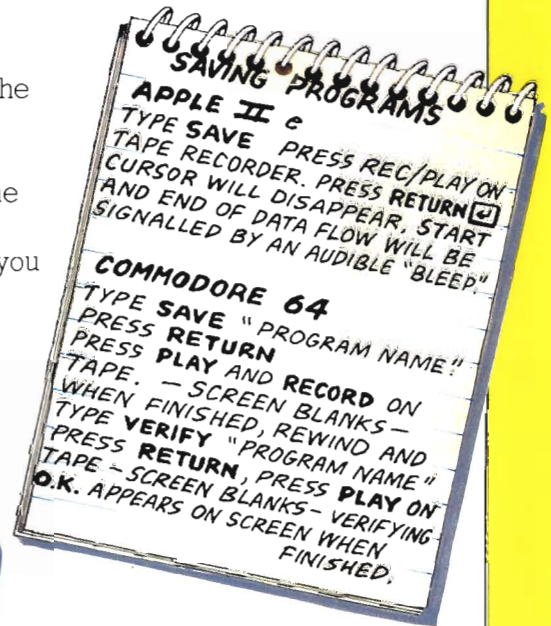 he
ne
you
SAVING PROGRAMS
APPLE II e
TYPE SAVE PRESS REC/PLAY ON
TAPE RECORDER. PRESS RETURN ↵
CURSOR WILL DISAPPEAR. START
AND END OF DATA FLOW WILL BE
SIGNALLED BY AN AUDIBLE "BLEEP."
COMMODORE 64
TYPE SAVE "PROGRAM NAME".
PRESS RETURN
PRESS PLAY AND RECORD ON
TAPE. – SCREEN BLANKS –
WHEN FINISHED, REWIND AND
TYPE VERIFY "PROGRAM NAME"
PRESS RETURN, PRESS PLAY ON
TAPE – SCREEN BLANKS – VERIFYING
O.K. APPEARS ON SCREEN WHEN
FINISHED.